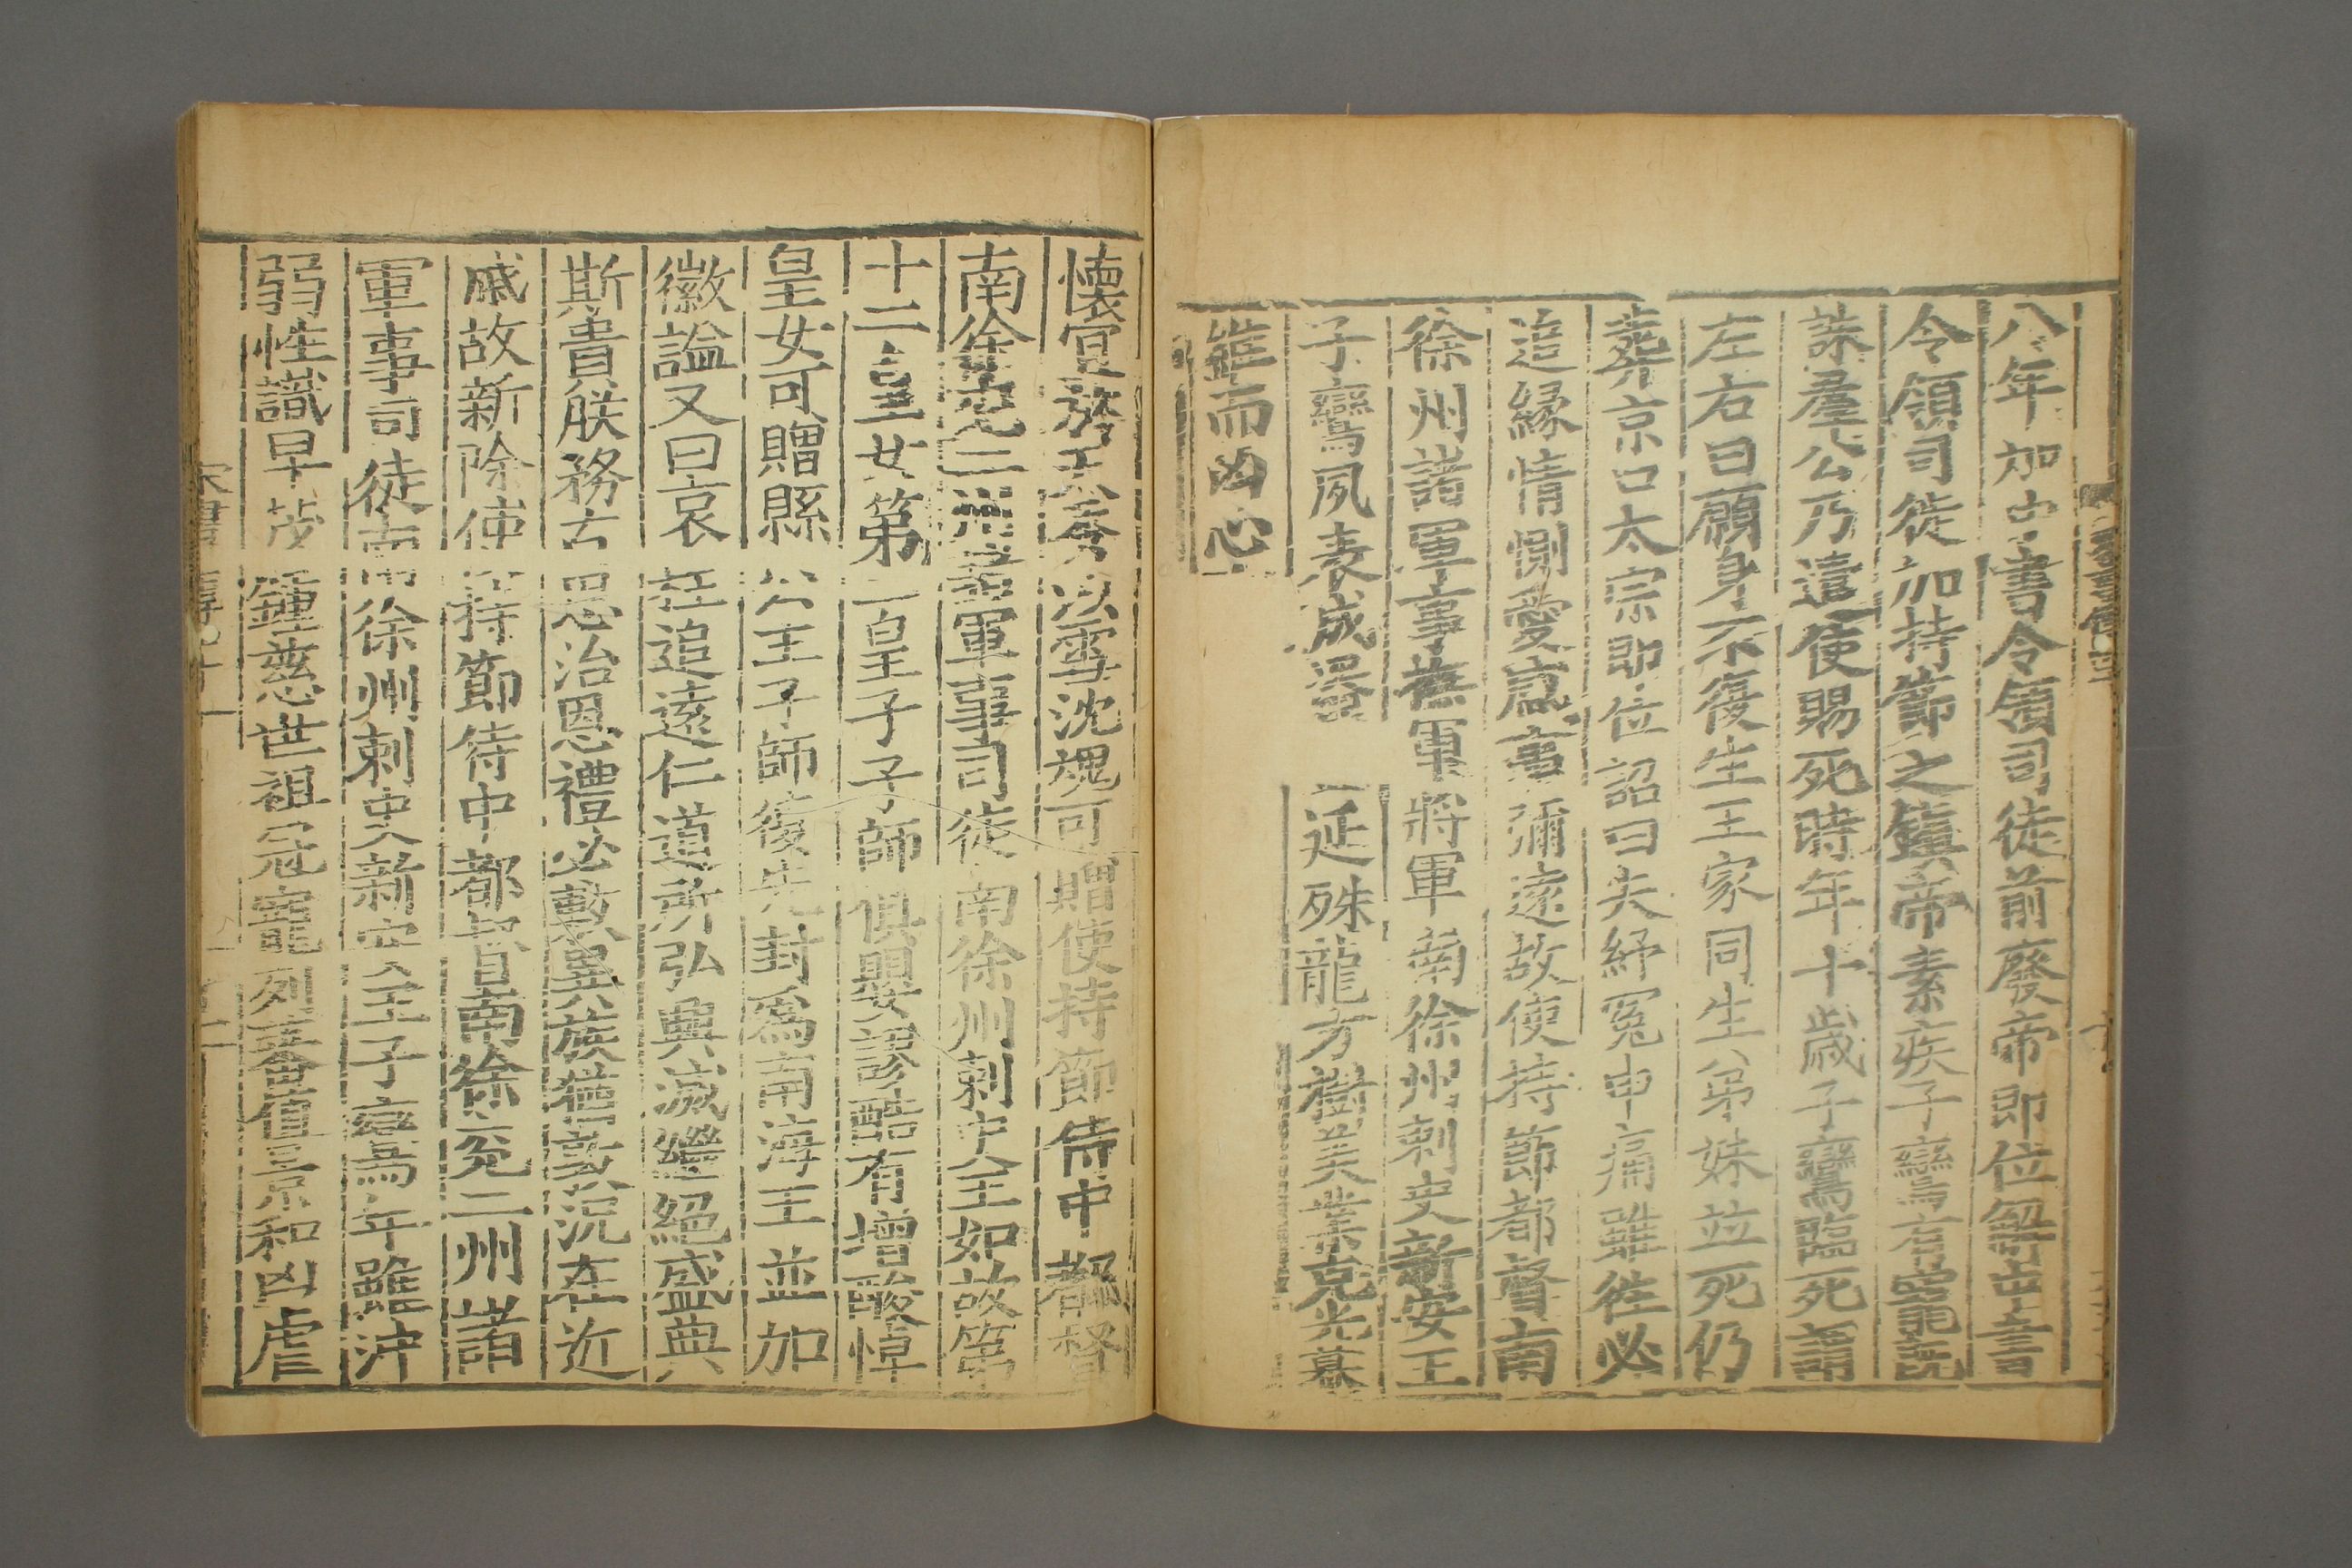 八年加中書令領司徒前廢帝即位解中書
令領司徒加持節之鎮帝素疾子鸞有寵既
誅羣公乃遣使賜死時年十歲子鸞臨死謂
左右曰願身不復生王家同生弟妹並死仍
葬京口太宗即位詔曰夫紓冤申痛雖徃必
追緣情惻愛感事彌遠故使持節都督南
徐州諸軍事撫軍將軍南徐州刺史新安王
子鸞夙表成器 延殊寵方樹美業克光蕃
維而凶心
懷宜 以雪沈魂可贈使持節侍中都督
南徐兖二州諸軍事司徒南徐州刺史王如故第
十二皇女第 二皇子子師俱嬰謬酷有增酸悼
皇女可贈縣公主子師復先封爲南海王並加
徽謚又曰哀 追遠仁道所弘興滅繼絕盛典
斯貴朕務古思治恩禮必敷異族猶敦況在近
戚故新除使持節侍中都督南徐兖二州諸
軍事司徒南徐州刺史新安王子鸞年雖沖
弱性識早茂鍾慈世祖冠寵列蕃值景和凶虐